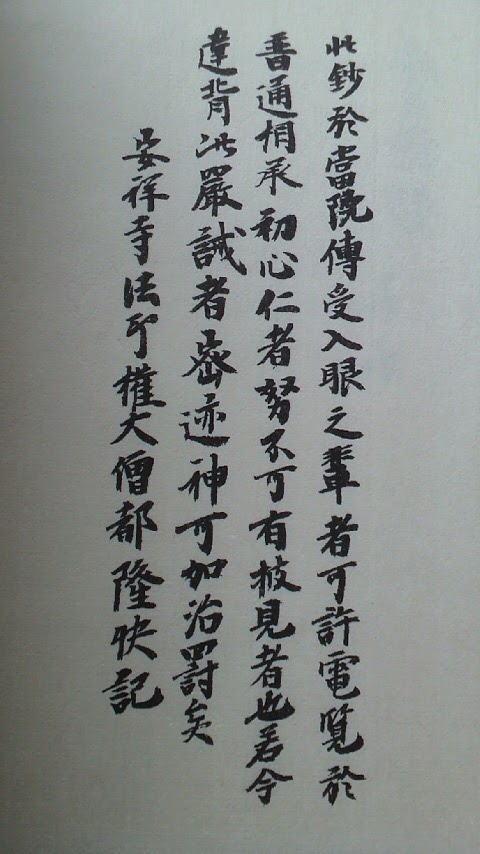 此鈔於當院傳受入眼之輩者可許電覧於
普通相承初心仁者努不可有披見者也若令
違背此嚴誡者密迹神可加治罰矣
安祥寺法印權大僧都隆快記